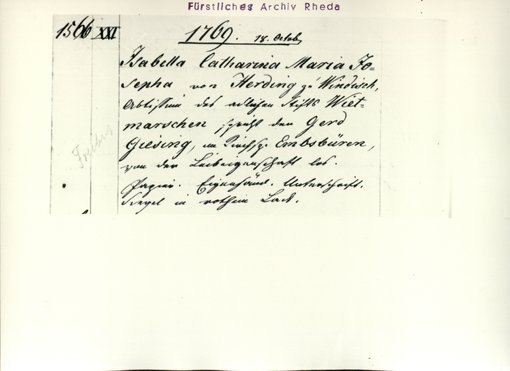 Fürstliches Archiv Rheda
1566 XXI
1769. 18. Octob,
Isabella Catharina Maria Jo-
sepha von Herding zu Windisch,
Äbtissinn des adligen Stifts Wiet-
marschen, spricht den Gerd
Giesing, im Kirchsp. Embsbüren,
von der Leibeigenschaft los.
Papier. Eigenhänd. Unterschrift.
Siegel in rothem Lack.